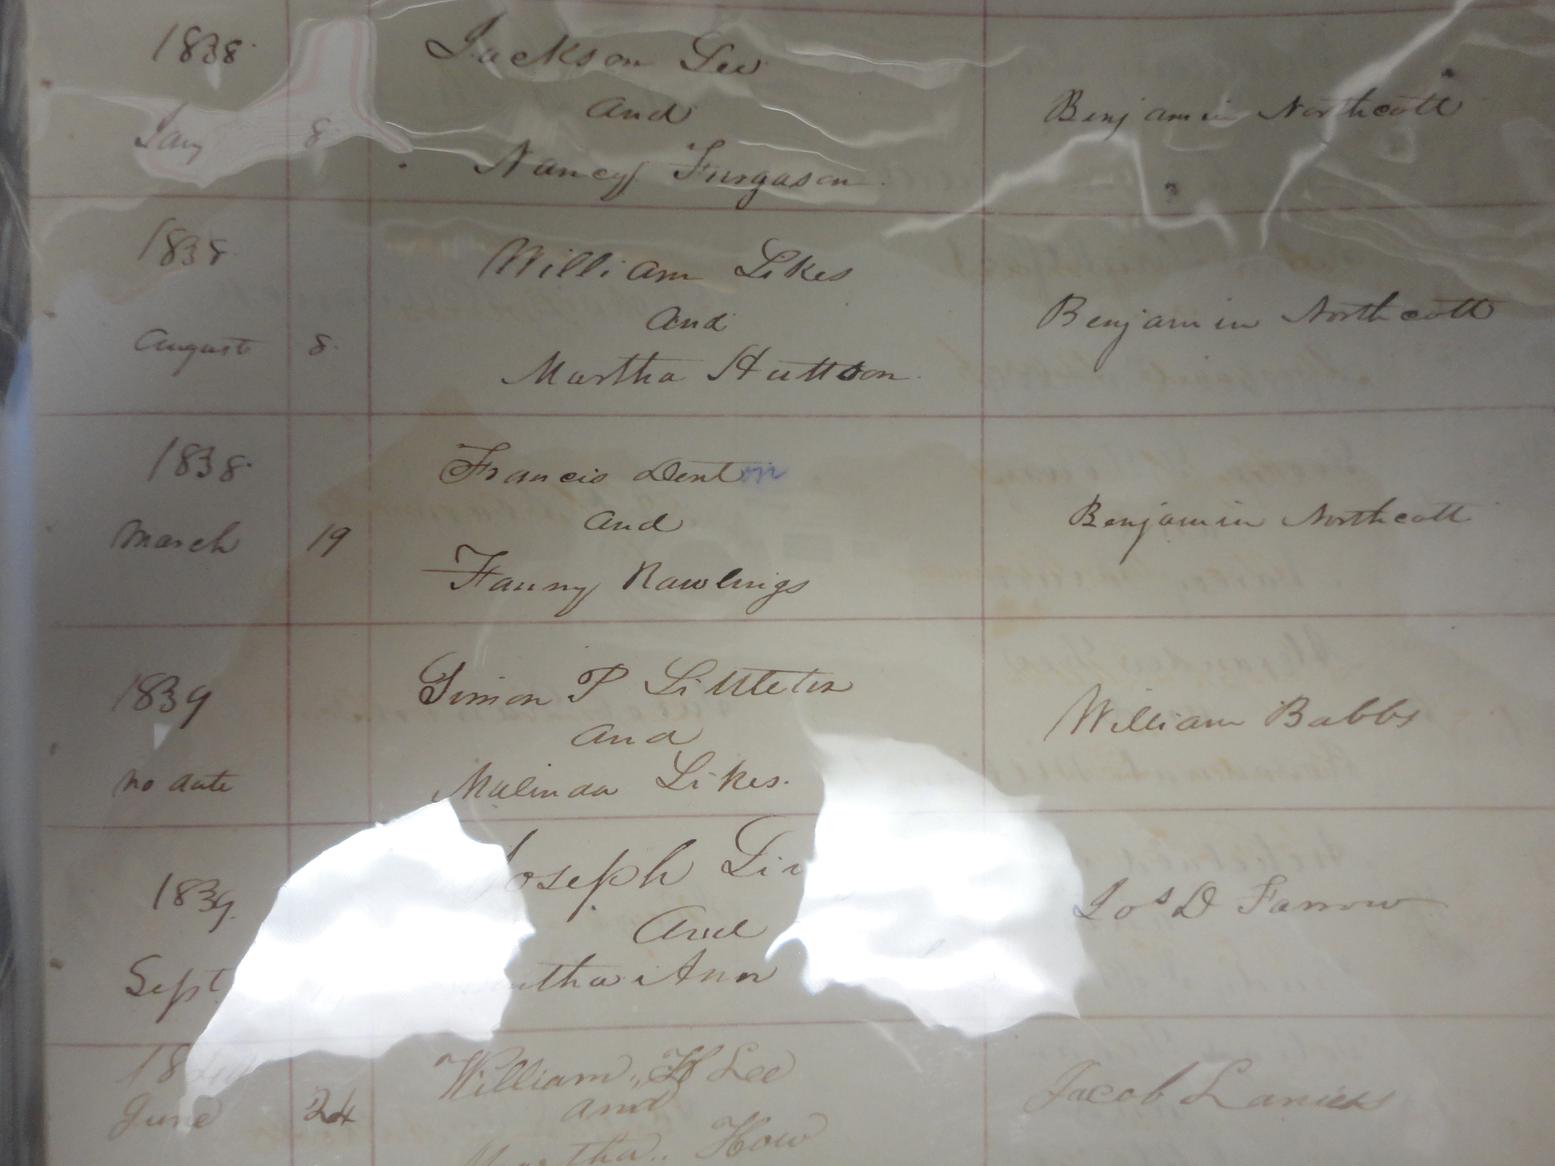 1838
Jackson Lee
and
Benjamin Northcott
Jany 8
Nancy Furgason
1838
William Likes
and
Benjamin Northcott
August 8
Martha Huttson
1838
Francis Denton
and
Benjamin Northcott
March 19
Fanny Rawlings
1839
Simon P Littleton
and
William Babbs
no date
Malinda Likes
1839
Joseph
Jos D Farrow
and
Sept
Ann
June 24
William H Lee
and
Jacob
Martha How